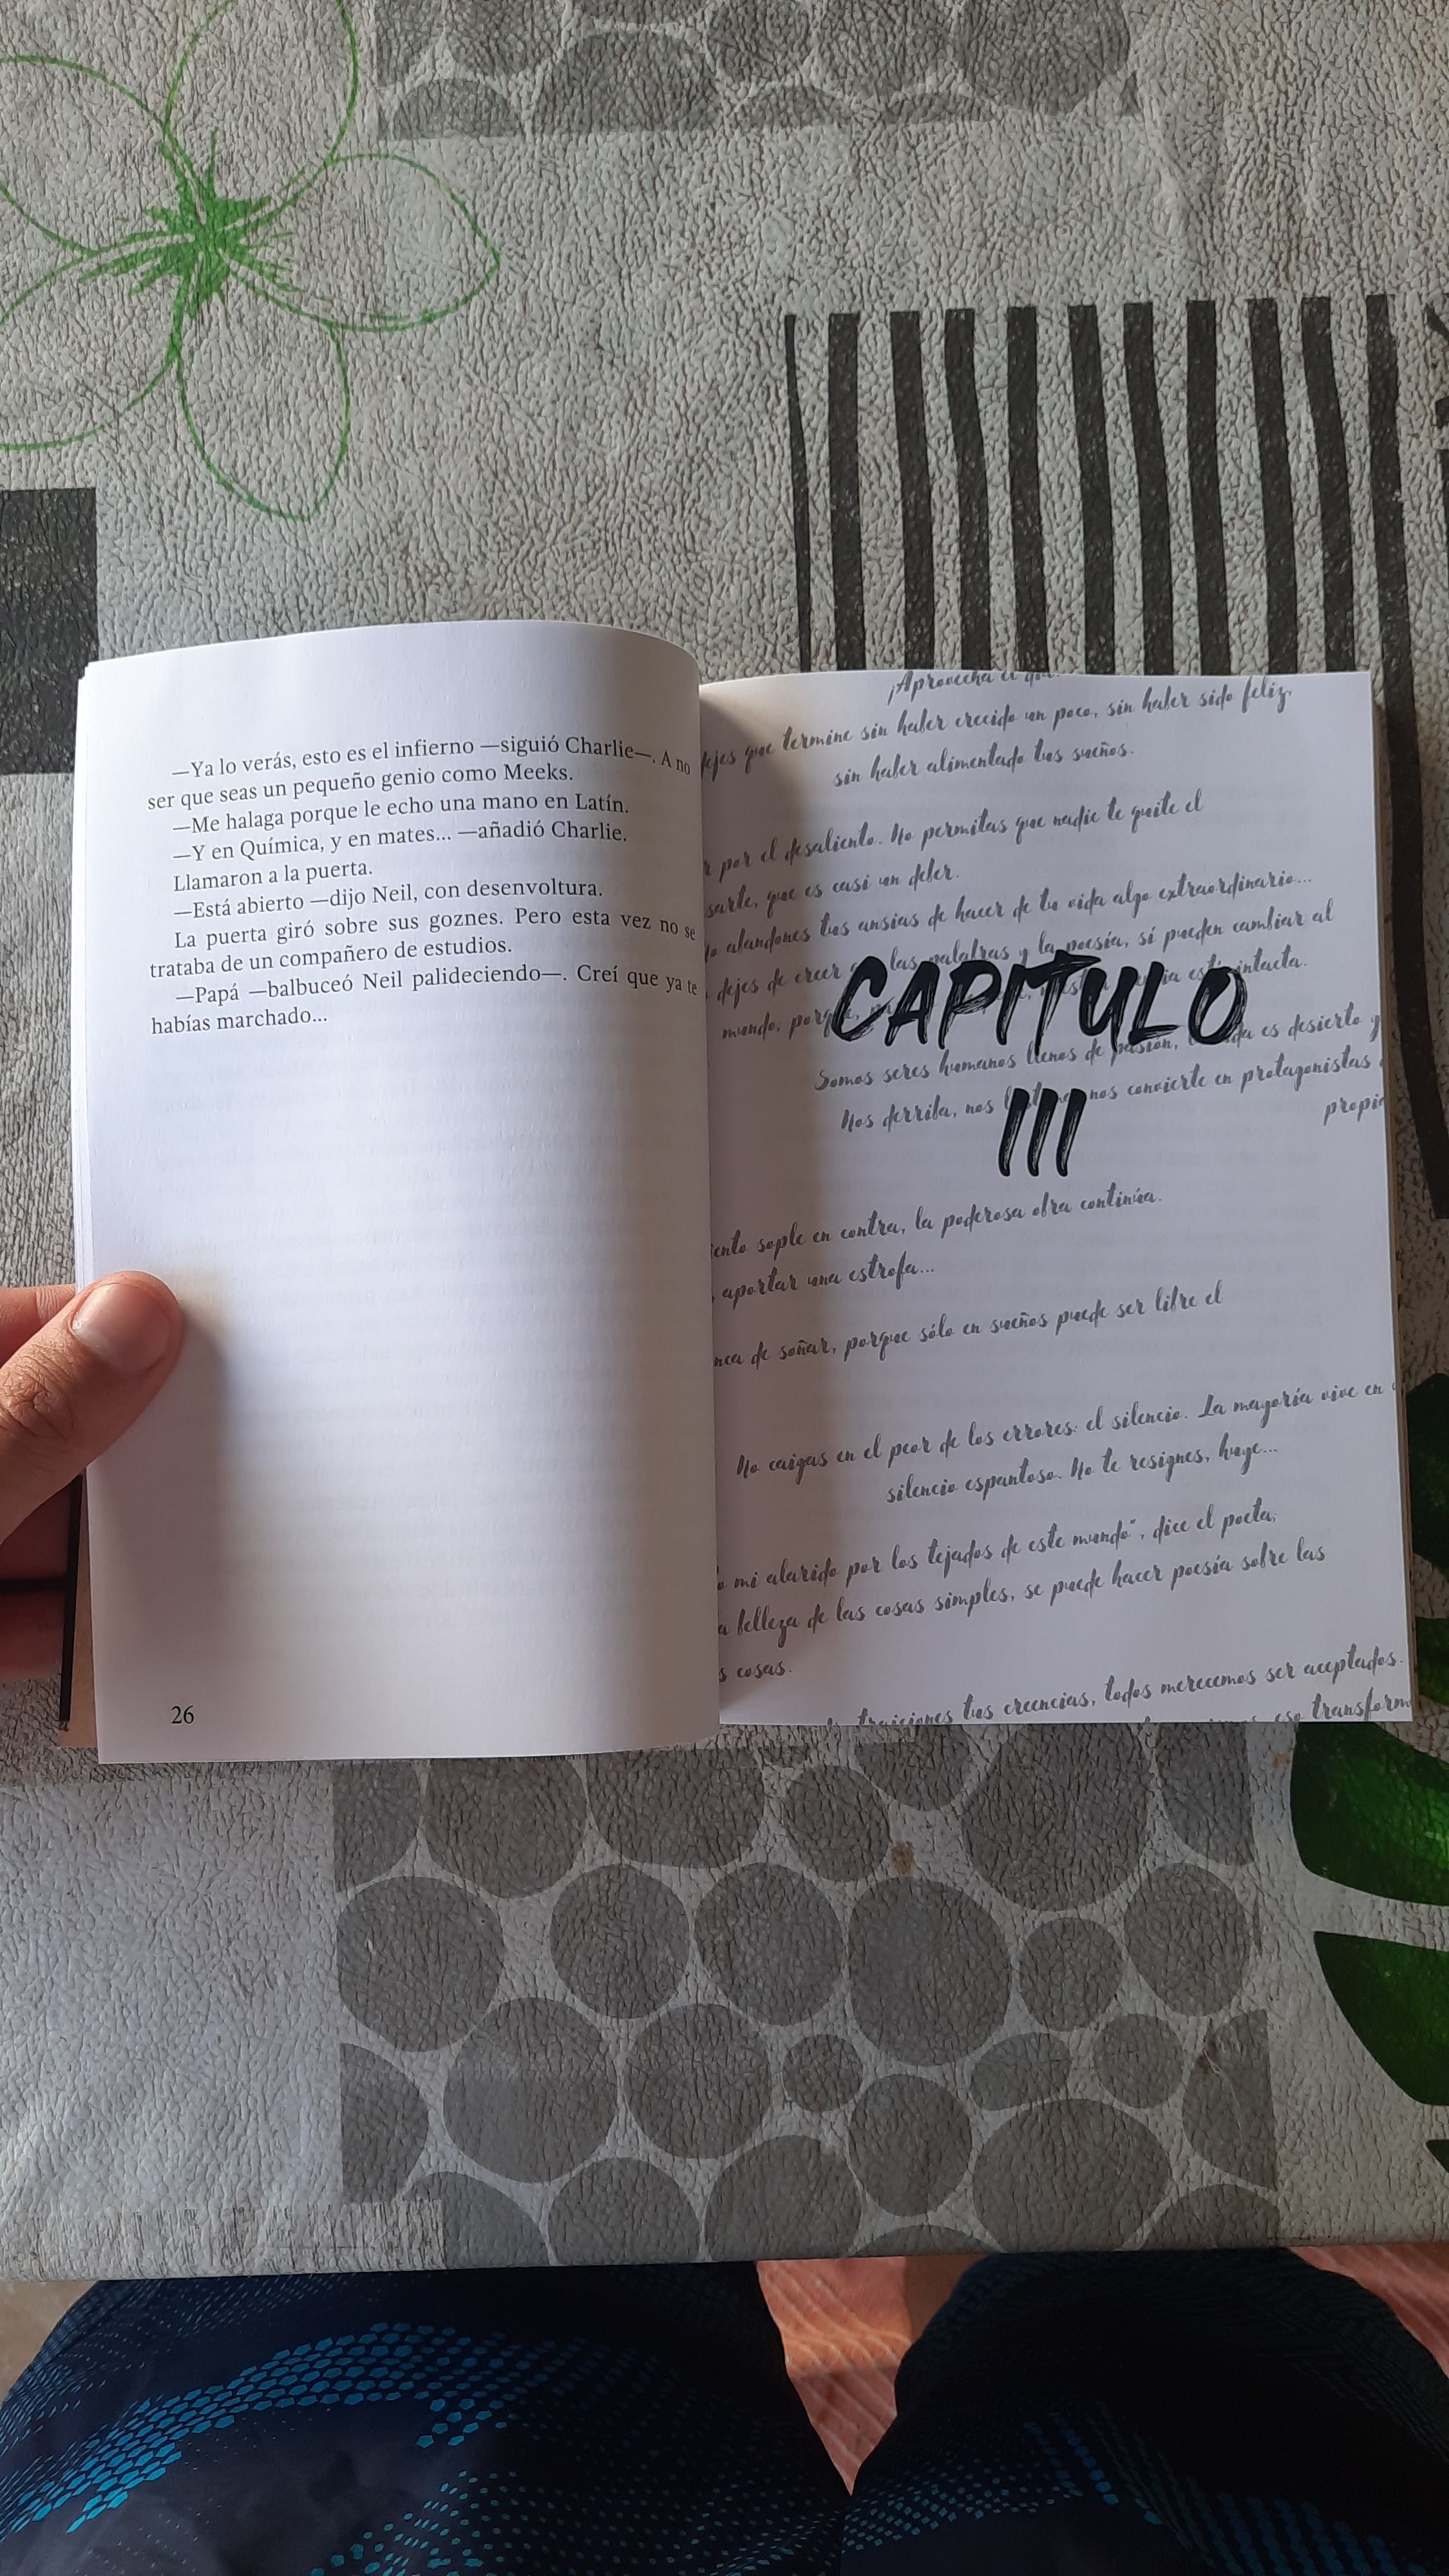 —Ya lo verás, esto es el infierno —siguió Charlie—. A no
ser que seas un pequeño genio como Meeks.
—Me halaga porque le echo una mano en Latín.
—Y en Química, y en mates... —añadió Charlie.
Llamaron a la puerta.
—Está abierto —dijo Neil, con desenvoltura.
La puerta giró sobre sus goznes. Pero esta vez no se
trataba de un compañero de estudios.
—Papá —balbuceó Neil palideciendo—. Creí que ya te
habías marchado...
26
¡Aprovecha el
que termine sin haber crecido un poco, sin haber sido feliz,
sin haber alimentado tus sueños.
por el desaliento. No permitas que nadie te quite el
que es casi un deber.
abandones tus ansias de hacer de tu vida algo extraordinario...
dejes de creer que las palabras y la poesía, sí pueden cambiar al
mundo, porque, está intacta.
CAPITULO
Somos seres humanos llenos de pasión, la vida es desierto y
Nos derriba, nos lastima, nos convierte en protagonistas
III
sople en contra, la poderosa obra continúa.
aportar una estrofa...
de soñar, porque sólo en sueños puede ser libre el
No caigas en el peor de los errores: el silencio. La mayoría vive en
silencio espantoso. No te resignes, huye...
mi alarido por los tejados de este mundo", dice el poeta;
belleza de las cosas simples, se puede hacer poesía sobre las
cosas.
traiciones tus creencias, todos merecemos ser aceptados.
eso